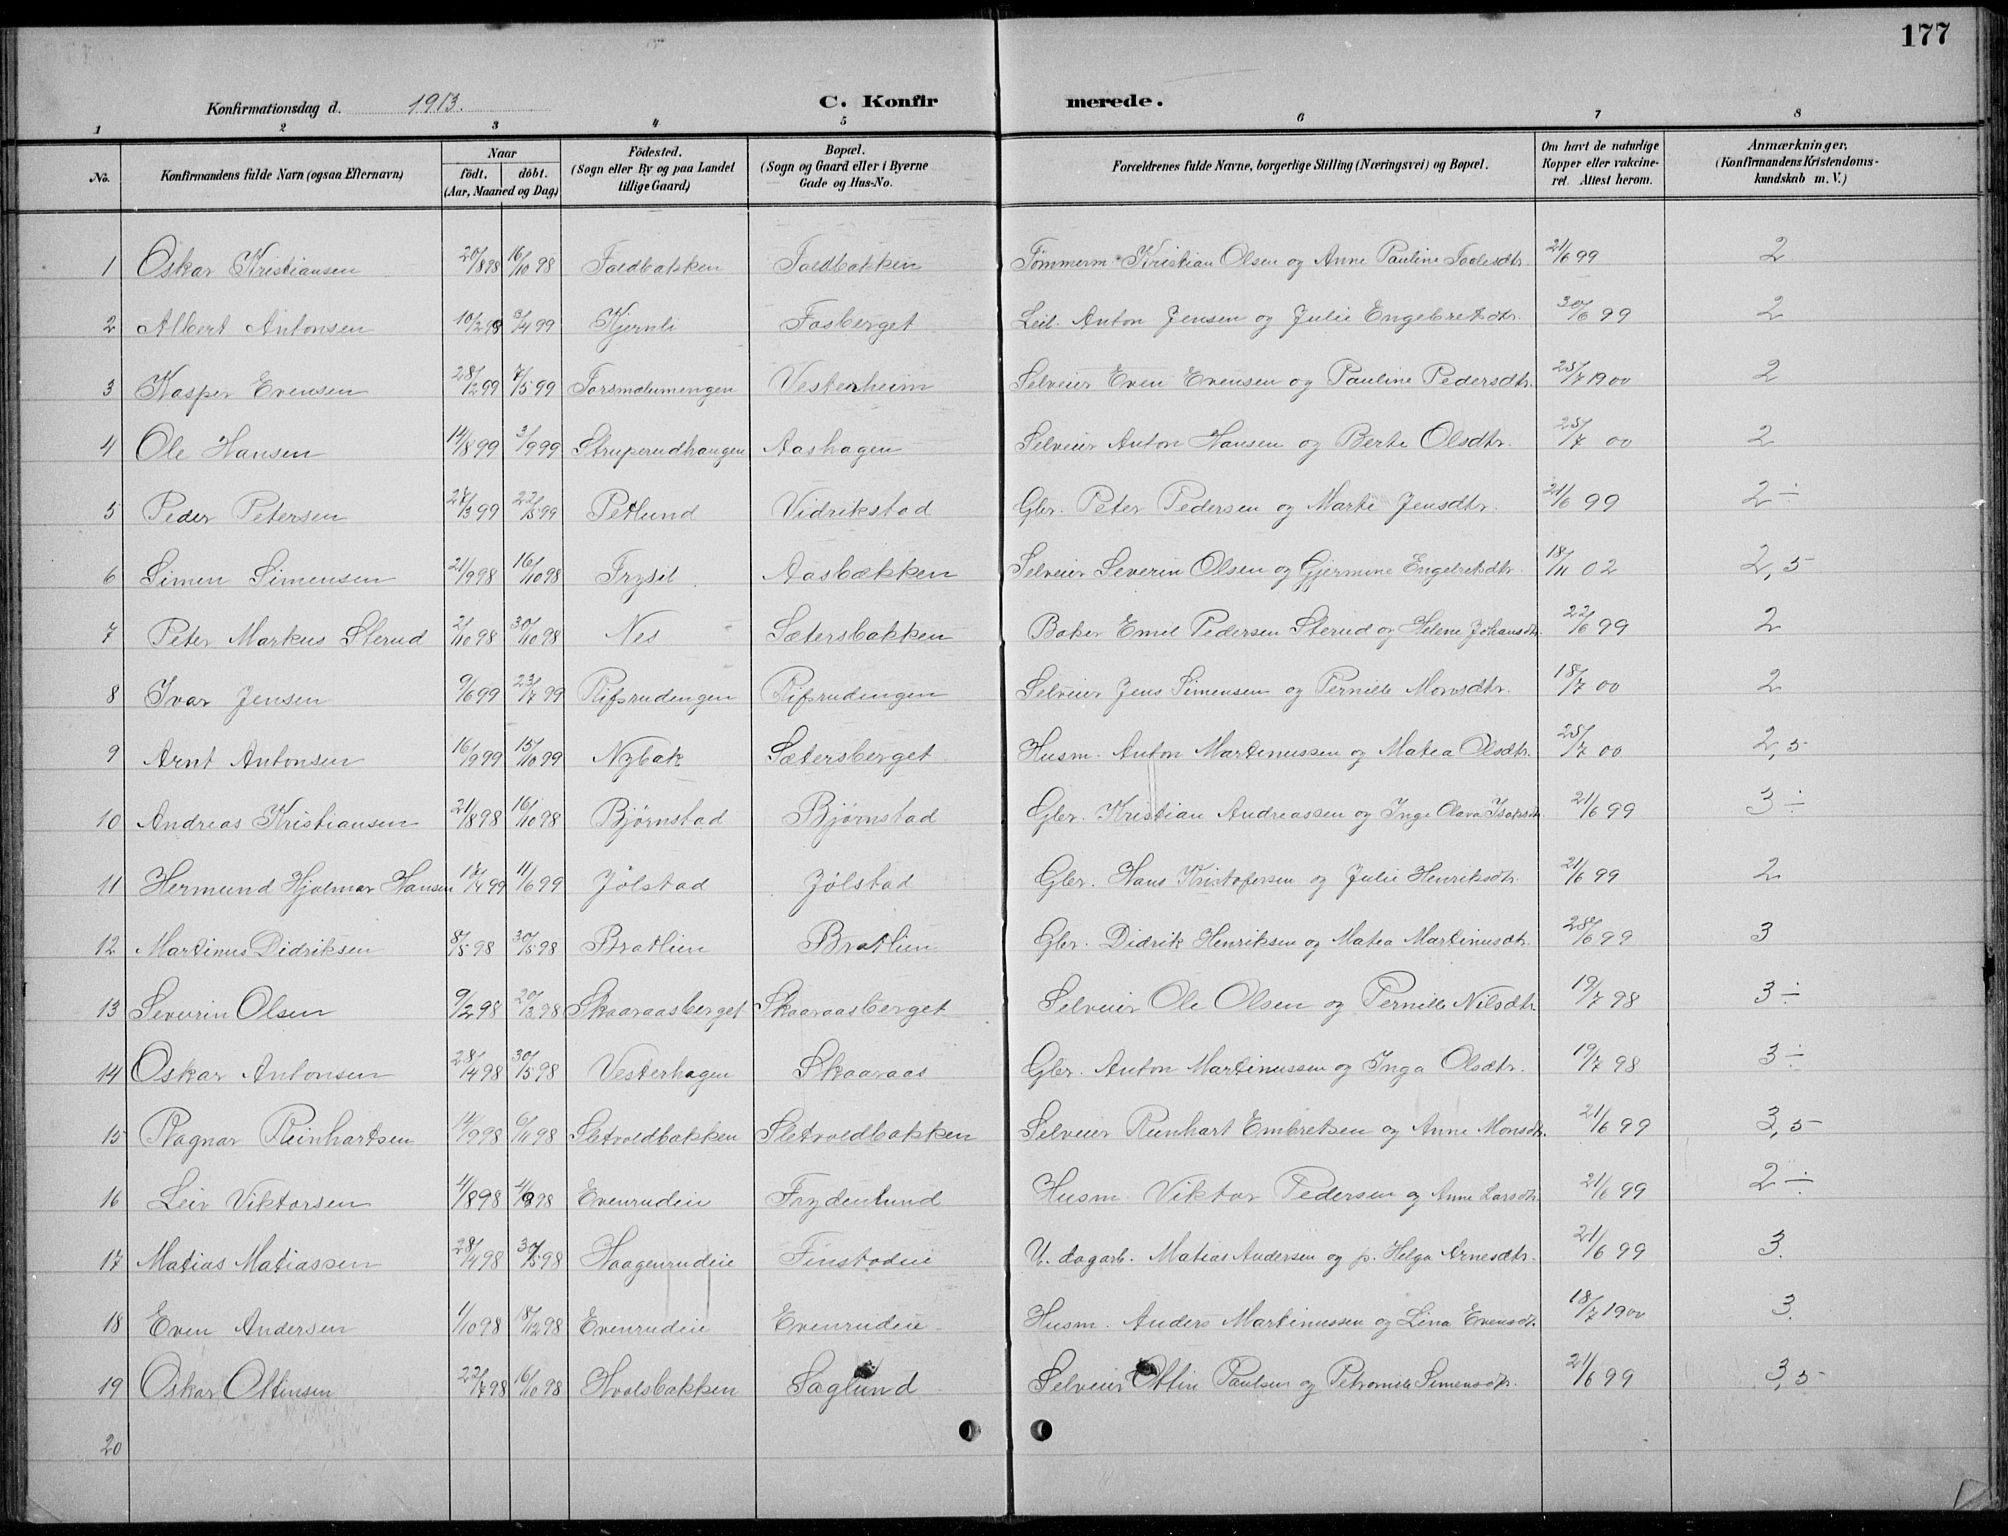 177
Konfirmationsdag d. 1913.
C. Konfirmerede.
1 2 3 4 5 6 7 8
No. | Konfirmandens fulde Navn (ogsaa Efternavn) | Naar født. døbt. (Aar, Maaned og Dag) | Fødested. (Sogn eller By og paa Landet tillige Gaard) | Bopæl. (Sogn og Gaard eller i Byerne Gade og Hus-No. | Forældrenes fulde Navne, borgerlige Stilling (Næringsvei) og Bopæl. | Om havt de naturlige Kopper eller vakcineret. Attest herom. | Anmærkninger, (Konfirmandens Kristendomskundskab m. V.)
1 Oskar Kristiansen 20/8 98 16/10 98 Foldbakken Foldbakken Tømmerm. Kristian Olsen og Anne Pauline Taalesdtr. 21/6 99 2
2 Albert Antonsen 10/2 99 3/4 99 Kjernli Fosberget Leil. Anton Jensen og Julie Engebretsdtr. 30/6 99 2
3 Kasper Evensen 28/2 99 7/5 99 Forsmoлumengen Vesterheim Selveier Even Evensen og Pauline Pedersdtr. 25/7 1900 2
4 Ole Hansen 14/8 99 3/9 99 Struperudhaugen Aashagen Selveier Anton Hansen og Berte Olsdtr. 25/7 00 2
5 Peder Petersen 27/3 99 22/5 99 Petlund Vidrikstad Gbr. Peter Pedersen og Marte Jensdtr. 21/6 99 2 ÷
6 Simen Simensen 21/9 98 16/10 98 Trysil Aasbækken Selveier Severin Olsen og Gjermine Engebretsdtr. 18/11 02 2,5
7 Peter Markus Sterud 2/10 98 30/10 98 Nes Sætersbakken Baker Emil Pedersen Sterud og Helene Johansdtr. 22/6 99 2
8 Ivar Jensen 9/6 99 23/7 99 Rifsrudengen Rifsrudengen Selveier Jens Simensen og Pernille Monsdtr. 18/7 00 2
9 Arnt Antonsen 16/9 99 15/10 99 Nybak Sætersberget Husm. Anton Martinussen og Matea Olsdtr. 25/7 00 2,5
10 Andreas Kristiansen 21/8 98 16/10 98 Bjørnstad Bjørnstad Gbr. Kristian Andreassen og Inge Olava Isaksdtr. 21/6 99 3 ÷
11 Hermund Hjalmar Hansen 17/4 99 11/6 99 Jølstad Jølstad Gbr. Hans Kristofersen og Julie Henriksdtr. 21/6 99 2
12 Martinus Didriksen 8/5 98 30/5 98 Bratlien Bratlien Gbr. Didrik Henriksen og Matea Martinusdtr. 28/6 99 3
13 Severin Olsen 9/2 98 20/3 98 Skaaraasberget Skaaraasberget Selveier Ole Olsen og Pernille Nilsdtr. 19/7 98 3 ÷
14 Oskar Antonsen 28/4 98 30/5 98 Vesterhagen Skaaraas Gbr. Anton Martinussen og Inga Olsdtr. 19/7 98 3 ÷
15 Ragnar Reinhartsen 14/9 98 6/11 98 Sletvoldbakken Sletvoldbakken Selveier Reinhart Embretsen og Anne Monsdtr. 21/6 99 3,5
16 Leiv Viktorsen 4/8 98 4/9 98 Evenrudeie Frydenlund Husm. Viktor Pedersen og Anne Larsdtr. 21/6 99 2 ÷
17 Matias Matiassen 28/4 98 30/5 98 Haagenrudeie Finstadeie U. dagarb. Matias Andersen og p. Helga Arnesdtr. 21/6 99 3.
18 Even Andersen 1/10 98 18/12 98 Evenrudeie Evenrudeie Husm. Anders Martinussen og Lina Evensdt. 18/7 1900 3.
19 Oskar Ottinsen 22/7 98 16/10 98 Hvalsbakken Saglund Selveier Ottin Paulsen og Petronelle Simensdtr. 21/6 99 3,5
20